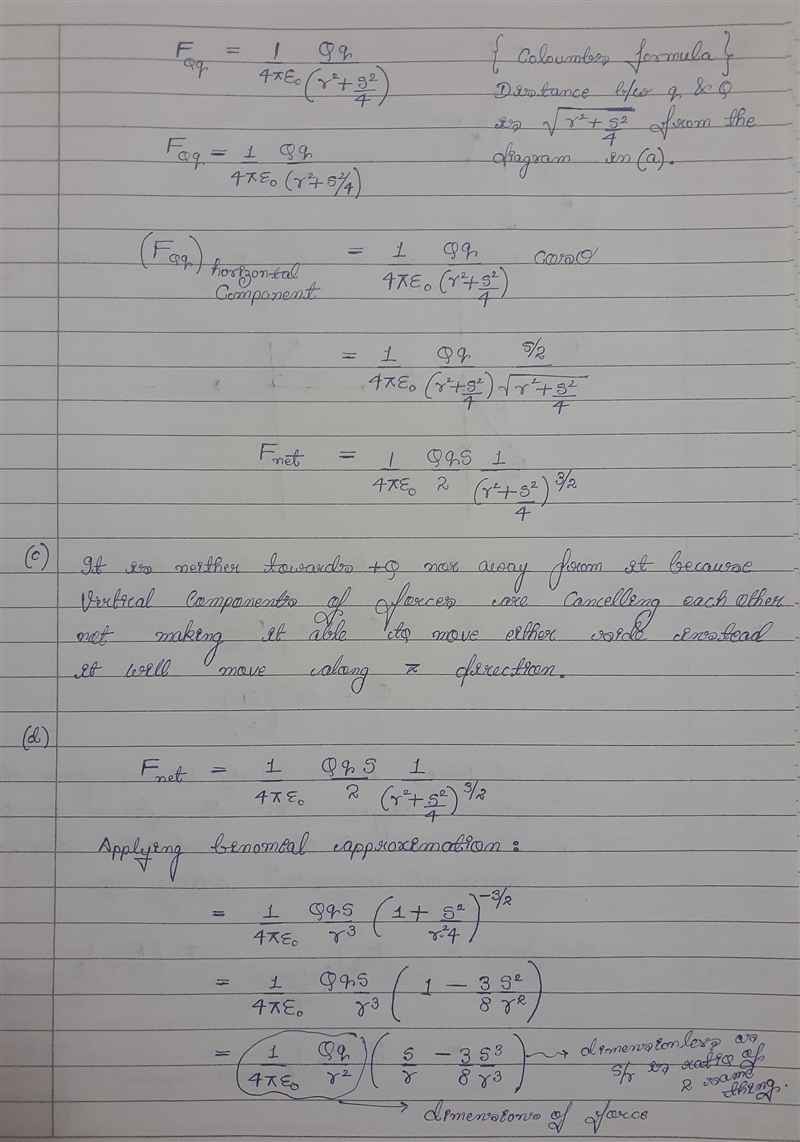 F_Qq = 1/4πε₀ Qq/(r²+s²/4) { Coloumbs formula }
Distance b/w q & Q
is √(r²+s²/4) from the
diagram in (a).
F_Qq = 1/4πε₀ Qq/(r²+s²/4)
(F_Qq) horizontal Component = 1/4πε₀ Qq/(r²+s²/4) cosθ
= 1/4πε₀ Qq/(r²+s²/4) s/2/√(r²+s²/4)
F_net = 1/4πε₀ QqS/2 1/(r²+s²/4)^3/2
(c) It is neither towards +Q nor away from it because
Vertical Components of forces are Cancelling each other
not making it able to move either side instead
it will move along x direction.
(d)
F_net = 1/4πε₀ QqS/2 1/(r²+s²/4)^3/2
Applying binomial approximation:
= 1/4πε₀ QqS/r³ (1 + s²/r²4)^-3/2
= 1/4πε₀ QqS/r³ (1 - 3/8 s²/r²)
= (1/4πε₀ Qq/r²) (s/r - 3/8 s³/r³) → dimensionless as
s/r is ratio of
2 same
thing.
→ dimensions of force